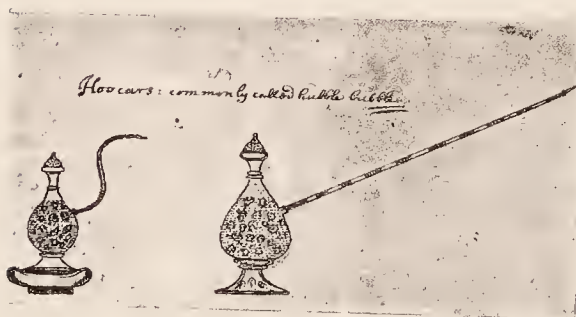 Hoocars: commonly called hubble bubble